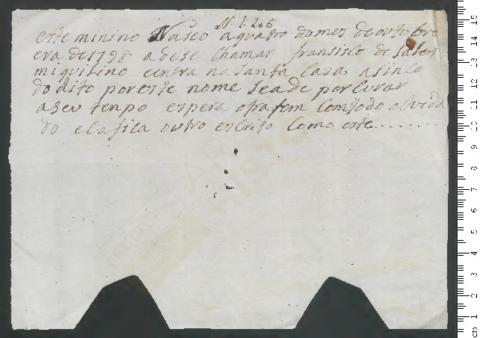 N. 1.206
este minino Nasceo aquatro domes deoutubro
era de 1798 adese chamar fransisco de Sales
miquilino eentra na Santa Caza asinco
do dito poreste nome seade porCurar
aseu tenpo espera opasem Comtodo
do elafica outro escrito Como este